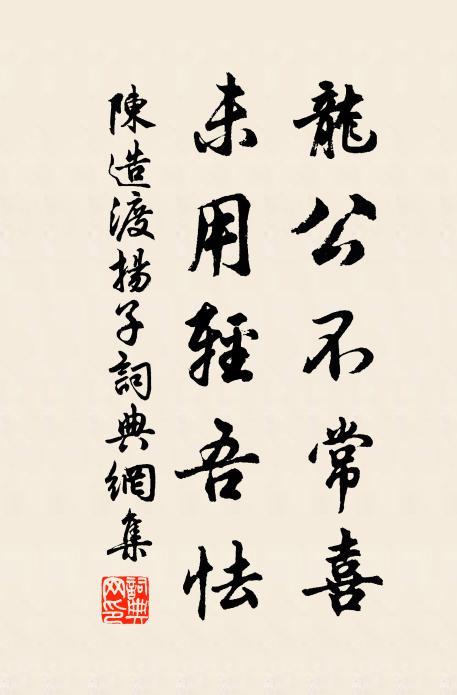 龍公不常喜
未用輕吾怯
陳造渡揚子詞典網集
詞典網印